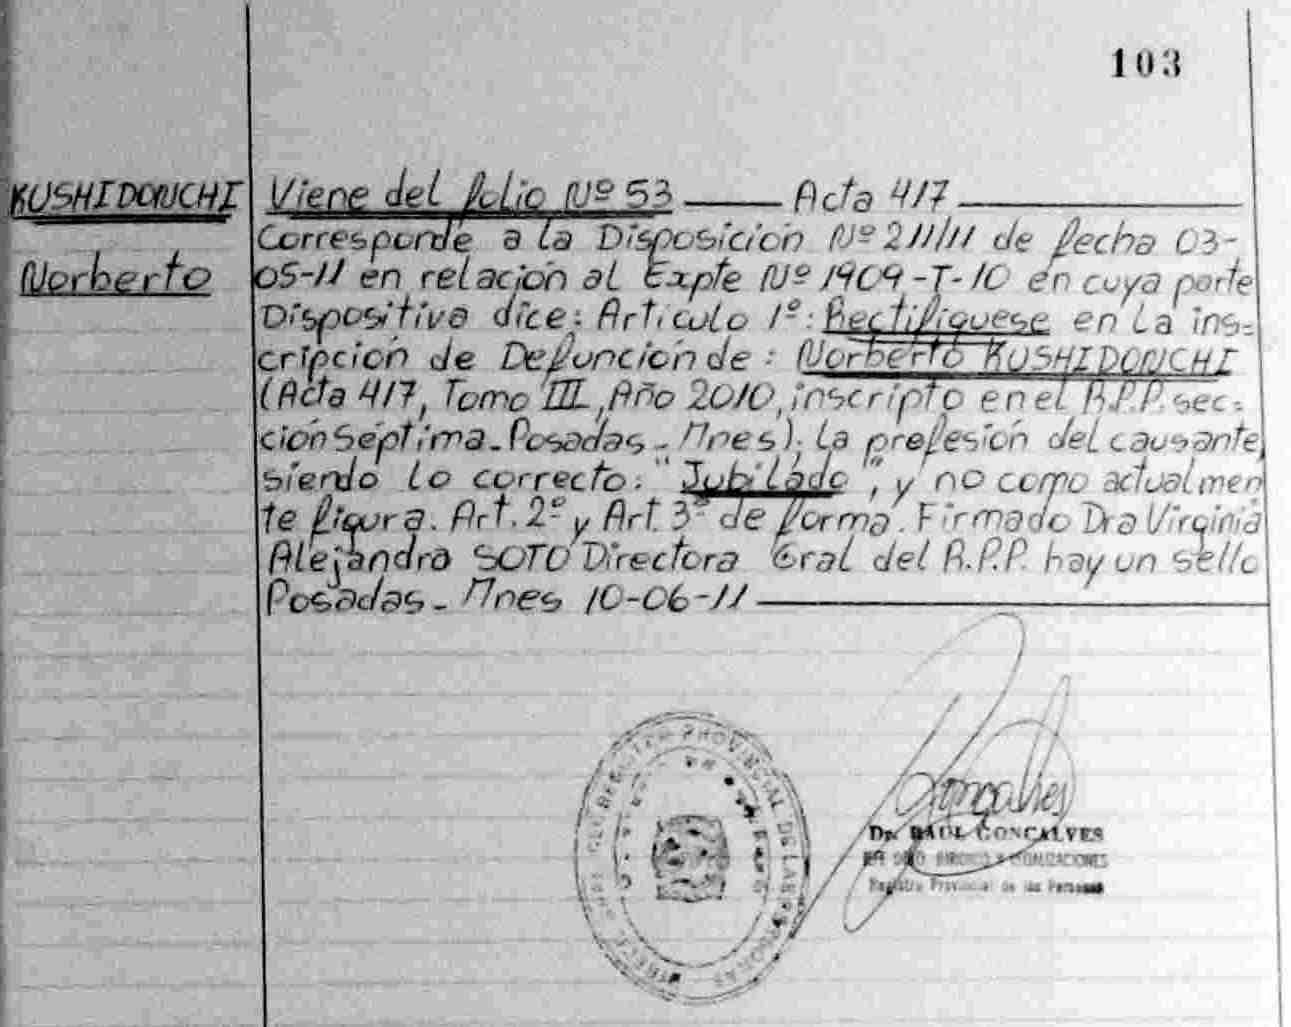 103
KUSHIDONCHI
Norberto
Viene del folio Nº 53 —— Acta 417 ——
Corresponde a la Disposición Nº 211/11 de fecha 03-
05-11 en relación al Expte Nº 1909-T-10 en cuya parte
Dispositiva dice: Artículo 1º: Rectifíquese en la ins=
cripción de Defunción de: Norberto KUSHIDONCHI
(Acta 417, Tomo III, Año 2010, inscripto en el R.P.P. sec=
ción Séptima-Posadas-Mnes); la profesión del causante,
siendo lo correcto: "Jubilado", y no como actualmen
te figura. Art. 2º y Art. 3º de forma. Firmado Dra Virginia
Alejandra SOTO Directora Gral del R.P.P. hay un sello
Posadas- Mnes 10-06-11 ——
PROVINCIAL DE LAS PERSONAS
Goncalves
Dr. RAUL GONCALVES
Registro Provincial de las Personas